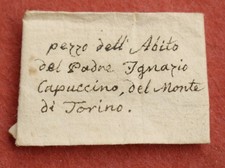 pezzo dell' Abito
del Padre Ignazio
Capuccino, del Monte
di Torino.